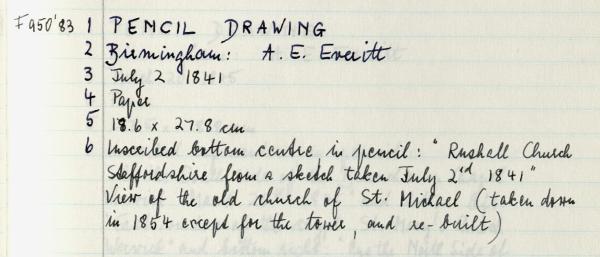 F950'83 1 PENCIL DRAWING
2 Birmingham: A. E. Everitt
3 July 2 1841
4 Paper
5 18.6 x 27.8 cm
6 Inscribed bottom centre in pencil: "Rushall Church
Staffordshire from a sketch taken July 2nd 1841"
View of the old church of St. Michael (taken down
in 1854 except for the tower, and re-built)